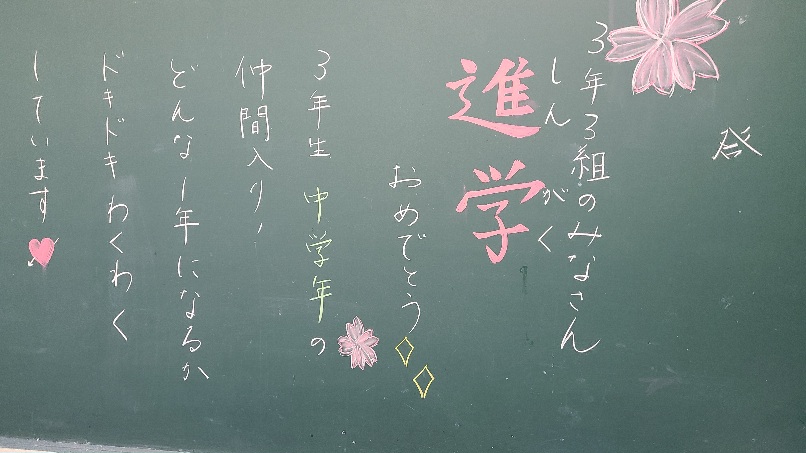 3年3組のみなさん
しんがく
進学
おめでとう
3年生 中学年の
仲間入り!
どんな1年になるか
ドキドキ わくわく
しています